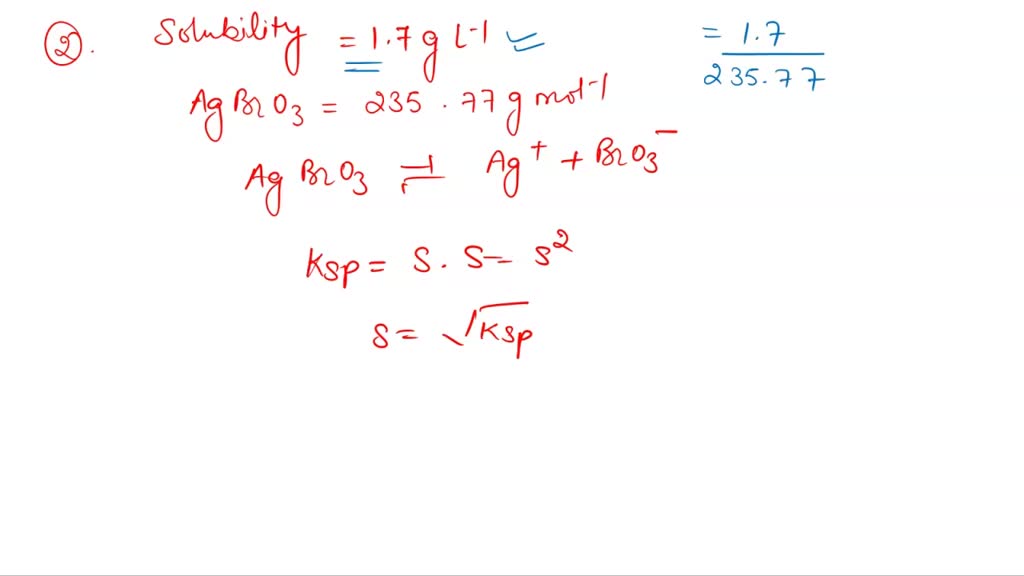 ②. Solubility = 1.7 g L-1
= 1.7
235.77
AgBrO3 = 235.77 g mol-1
AgBrO3 ⇌ Ag+ + BrO3-
Ksp = S. S = S2
S = √Ksp